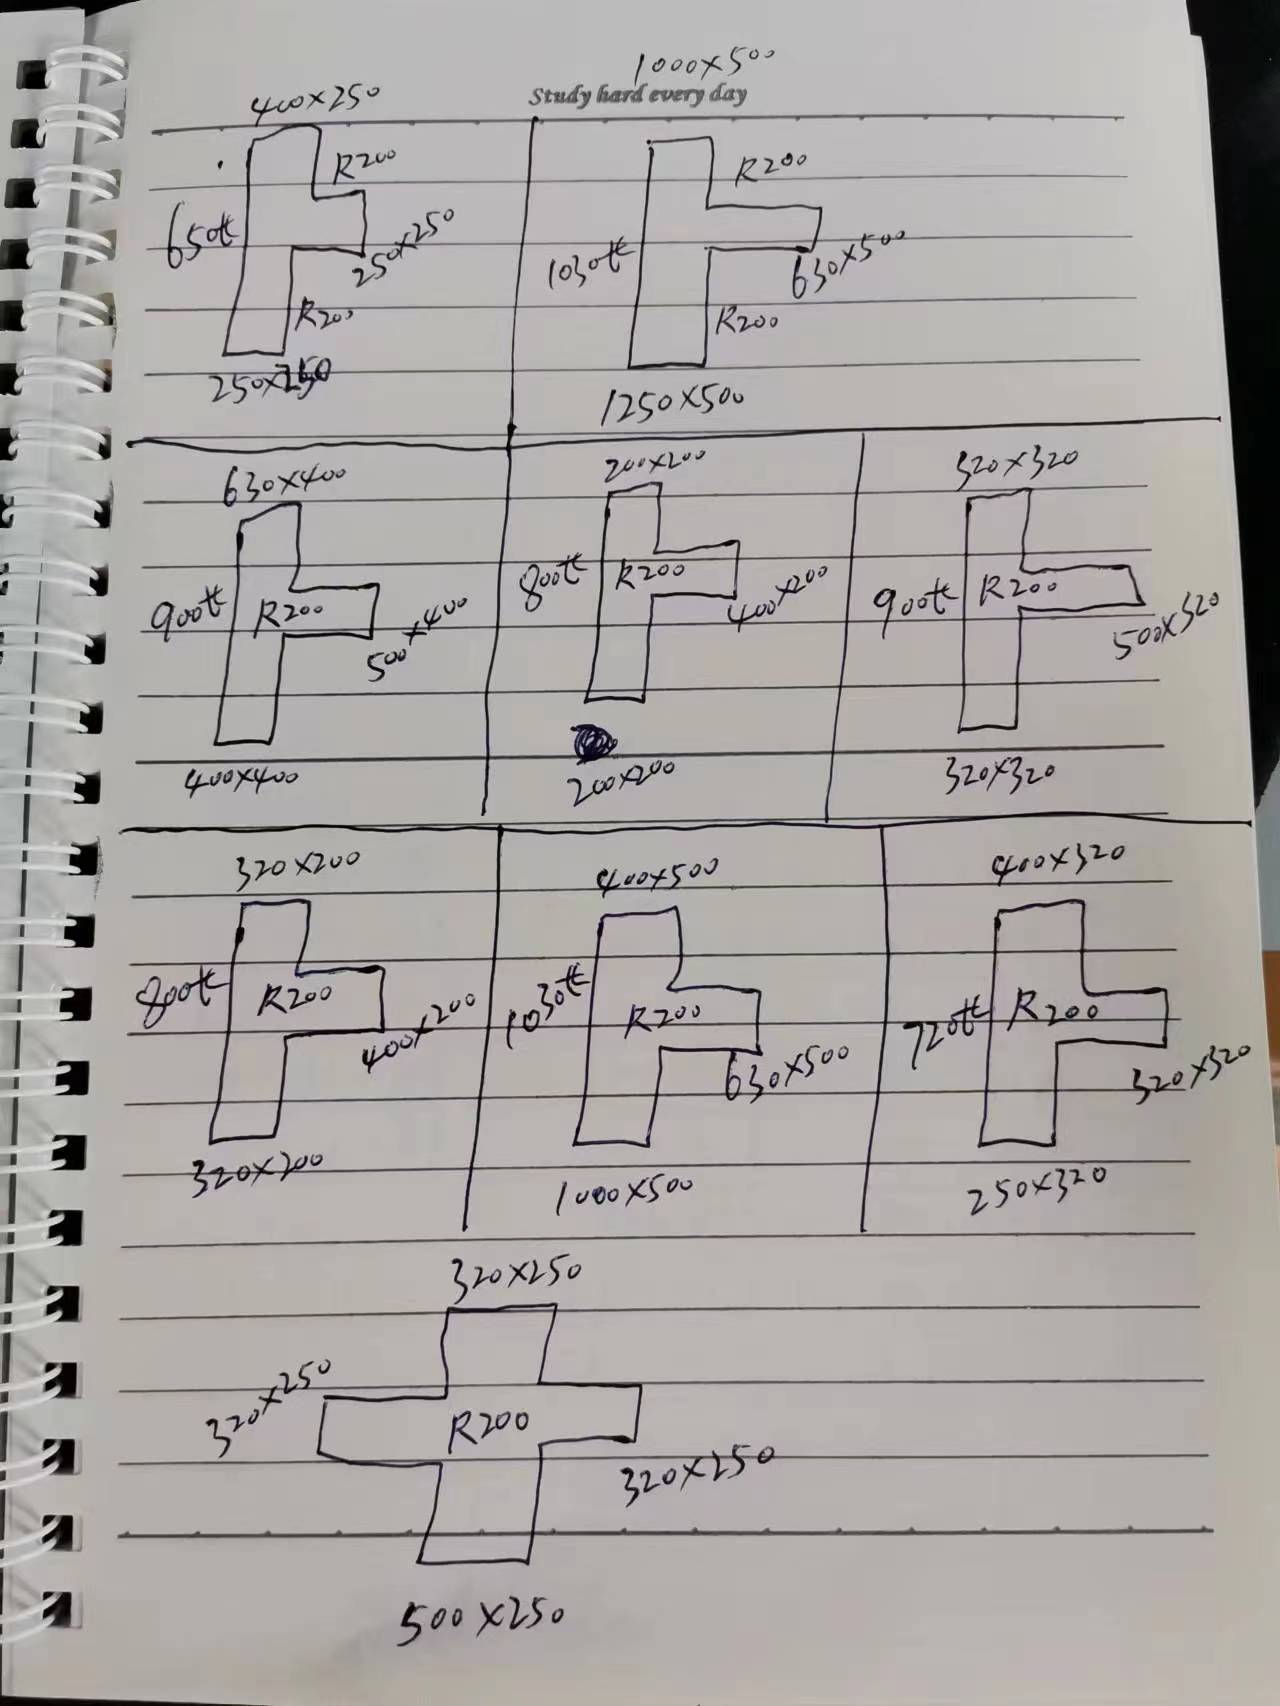 1000×500
Study hard every day
400×250
R200
650长
250×250
R200
R200
1030长
630×500
R200
1250×500
630×400
900长
R200
500×400
400×400
200×200
800长
R200
400×200
200×200
320×320
900长
R200
500×320
320×320
320×200
800长
R200
400×200
320×200
400×500
1030长
R200
630×500
1000×500
400×320
720长
R200
320×320
250×320
320×250
320×250
R200
320×250
500×250